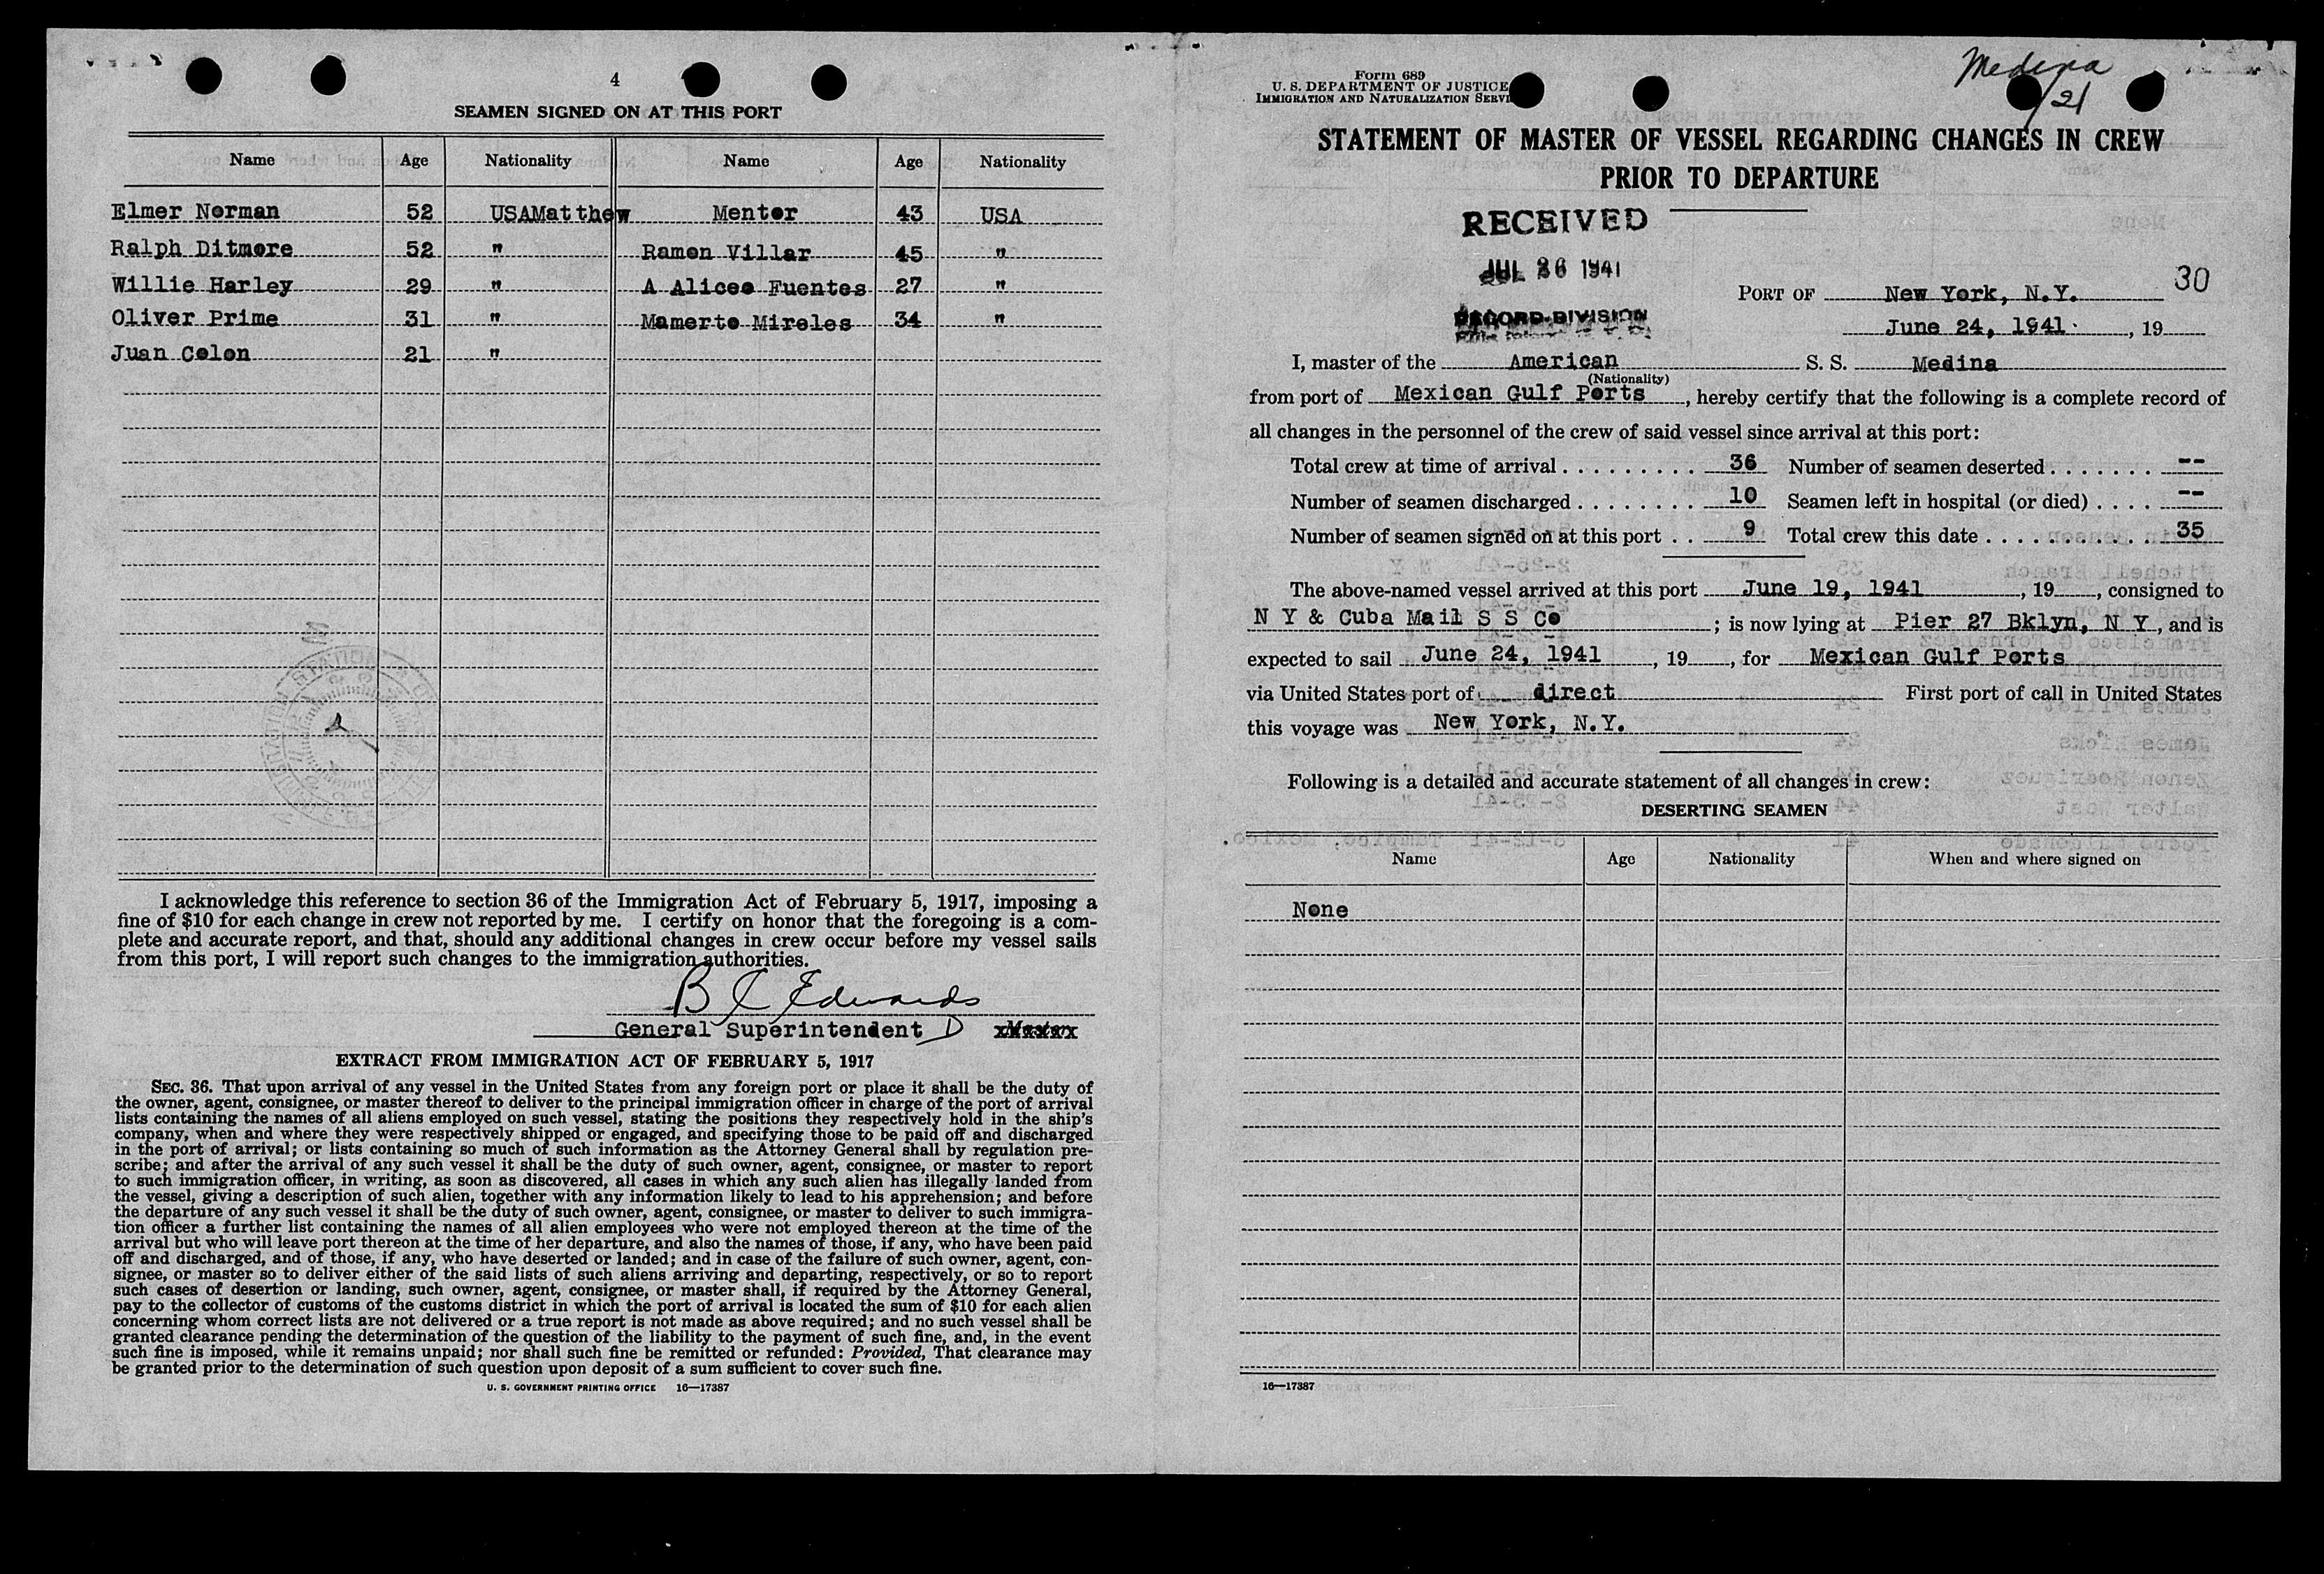 4
SEAMEN SIGNED ON AT THIS PORT
Name Age Nationality Name Age Nationality
Elmer Norman 52 USA Matthew Mentor 43 USA
Ralph Ditmore 52 " Ramon Villar 45 "
Willie Harley 29 " A Alicea Fuentes 27 "
Oliver Prime 31 " Mamerto Mireles 34 "
Juan Colon 21 "
I acknowledge this reference to section 36 of the Immigration Act of February 5, 1917, imposing a
fine of $10 for each change in crew not reported by me. I certify on honor that the foregoing is a com-
plete and accurate report, and that, should any additional changes in crew occur before my vessel sails
from this port, I will report such changes to the immigration authorities.
B C Edwards
General Superintendent D Master
EXTRACT FROM IMMIGRATION ACT OF FEBRUARY 5, 1917
SEC. 36. That upon arrival of any vessel in the United States from any foreign port or place it shall be the duty of
the owner, agent, consignee, or master thereof to deliver to the principal immigration officer in charge of the port of arrival
lists containing the names of all aliens employed on such vessel, stating the positions they respectively hold in the ship's
company, when and where they were respectively shipped or engaged, and specifying those to be paid off and discharged
in the port of arrival; or lists containing so much of such information as the Attorney General shall by regulation pre-
scribe; and after the arrival of any such vessel it shall be the duty of such owner, agent, consignee, or master to report
to such immigration officer, in writing, as soon as discovered, all cases in which any such alien has illegally landed from
the vessel, giving a description of such alien, together with any information likely to lead to his apprehension; and before
the departure of any such vessel it shall be the duty of such owner, agent, consignee, or master to deliver to such immigra-
tion officer a further list containing the names of all alien employees who were not employed thereon at the time of the
arrival but who will leave port thereon at the time of her departure, and also the names of those, if any, who have been paid
off and discharged, and of those, if any, who have deserted or landed; and in case of the failure of such owner, agent, con-
signee, or master so to deliver either of the said lists of such aliens arriving and departing, respectively, or so to report
such cases of desertion or landing, such owner, agent, consignee, or master shall, if required by the Attorney General,
pay to the collector of customs of the customs district in which the port of arrival is located the sum of $10 for each alien
concerning whom correct lists are not delivered or a true report is not made as above required; and no such vessel shall be
granted clearance pending the determination of the question of the liability to the payment of such fine, and, in the event
such fine is imposed, while it remains unpaid; nor shall such fine be remitted or refunded: Provided, That clearance may
be granted prior to the determination of such question upon deposit of a sum sufficient to cover such fine.
U. S. GOVERNMENT PRINTING OFFICE 16—17387
Form 689
U. S. DEPARTMENT OF JUSTICE
IMMIGRATION AND NATURALIZATION SERVI
Medina
/21
STATEMENT OF MASTER OF VESSEL REGARDING CHANGES IN CREW
PRIOR TO DEPARTURE
RECEIVED
JUL 26 1941
RECORD DIVISION
PORT OF New York, N.Y. 30
June 24, 1941 , 19
I, master of the American S. S. Medina
(Nationality)
from port of Mexican Gulf Ports , hereby certify that the following is a complete record of
all changes in the personnel of the crew of said vessel since arrival at this port:
Total crew at time of arrival . . . . . . . . . 36 Number of seamen deserted . . . . . . . --
Number of seamen discharged . . . . . . . . 10 Seamen left in hospital (or died) . . . . --
Number of seamen signed on at this port . . 9 Total crew this date . . . . . . . . . . . 35
The above-named vessel arrived at this port June 19, 1941 , 19 , consigned to
N Y & Cuba Mail S S Co ; is now lying at Pier 27 Bklyn, N Y , and is
expected to sail June 24, 1941 , 19 , for Mexican Gulf Ports
via United States port of direct First port of call in United States
this voyage was New York, N.Y.
Following is a detailed and accurate statement of all changes in crew:
DESERTING SEAMEN
Name Age Nationality When and where signed on
None
16—17387